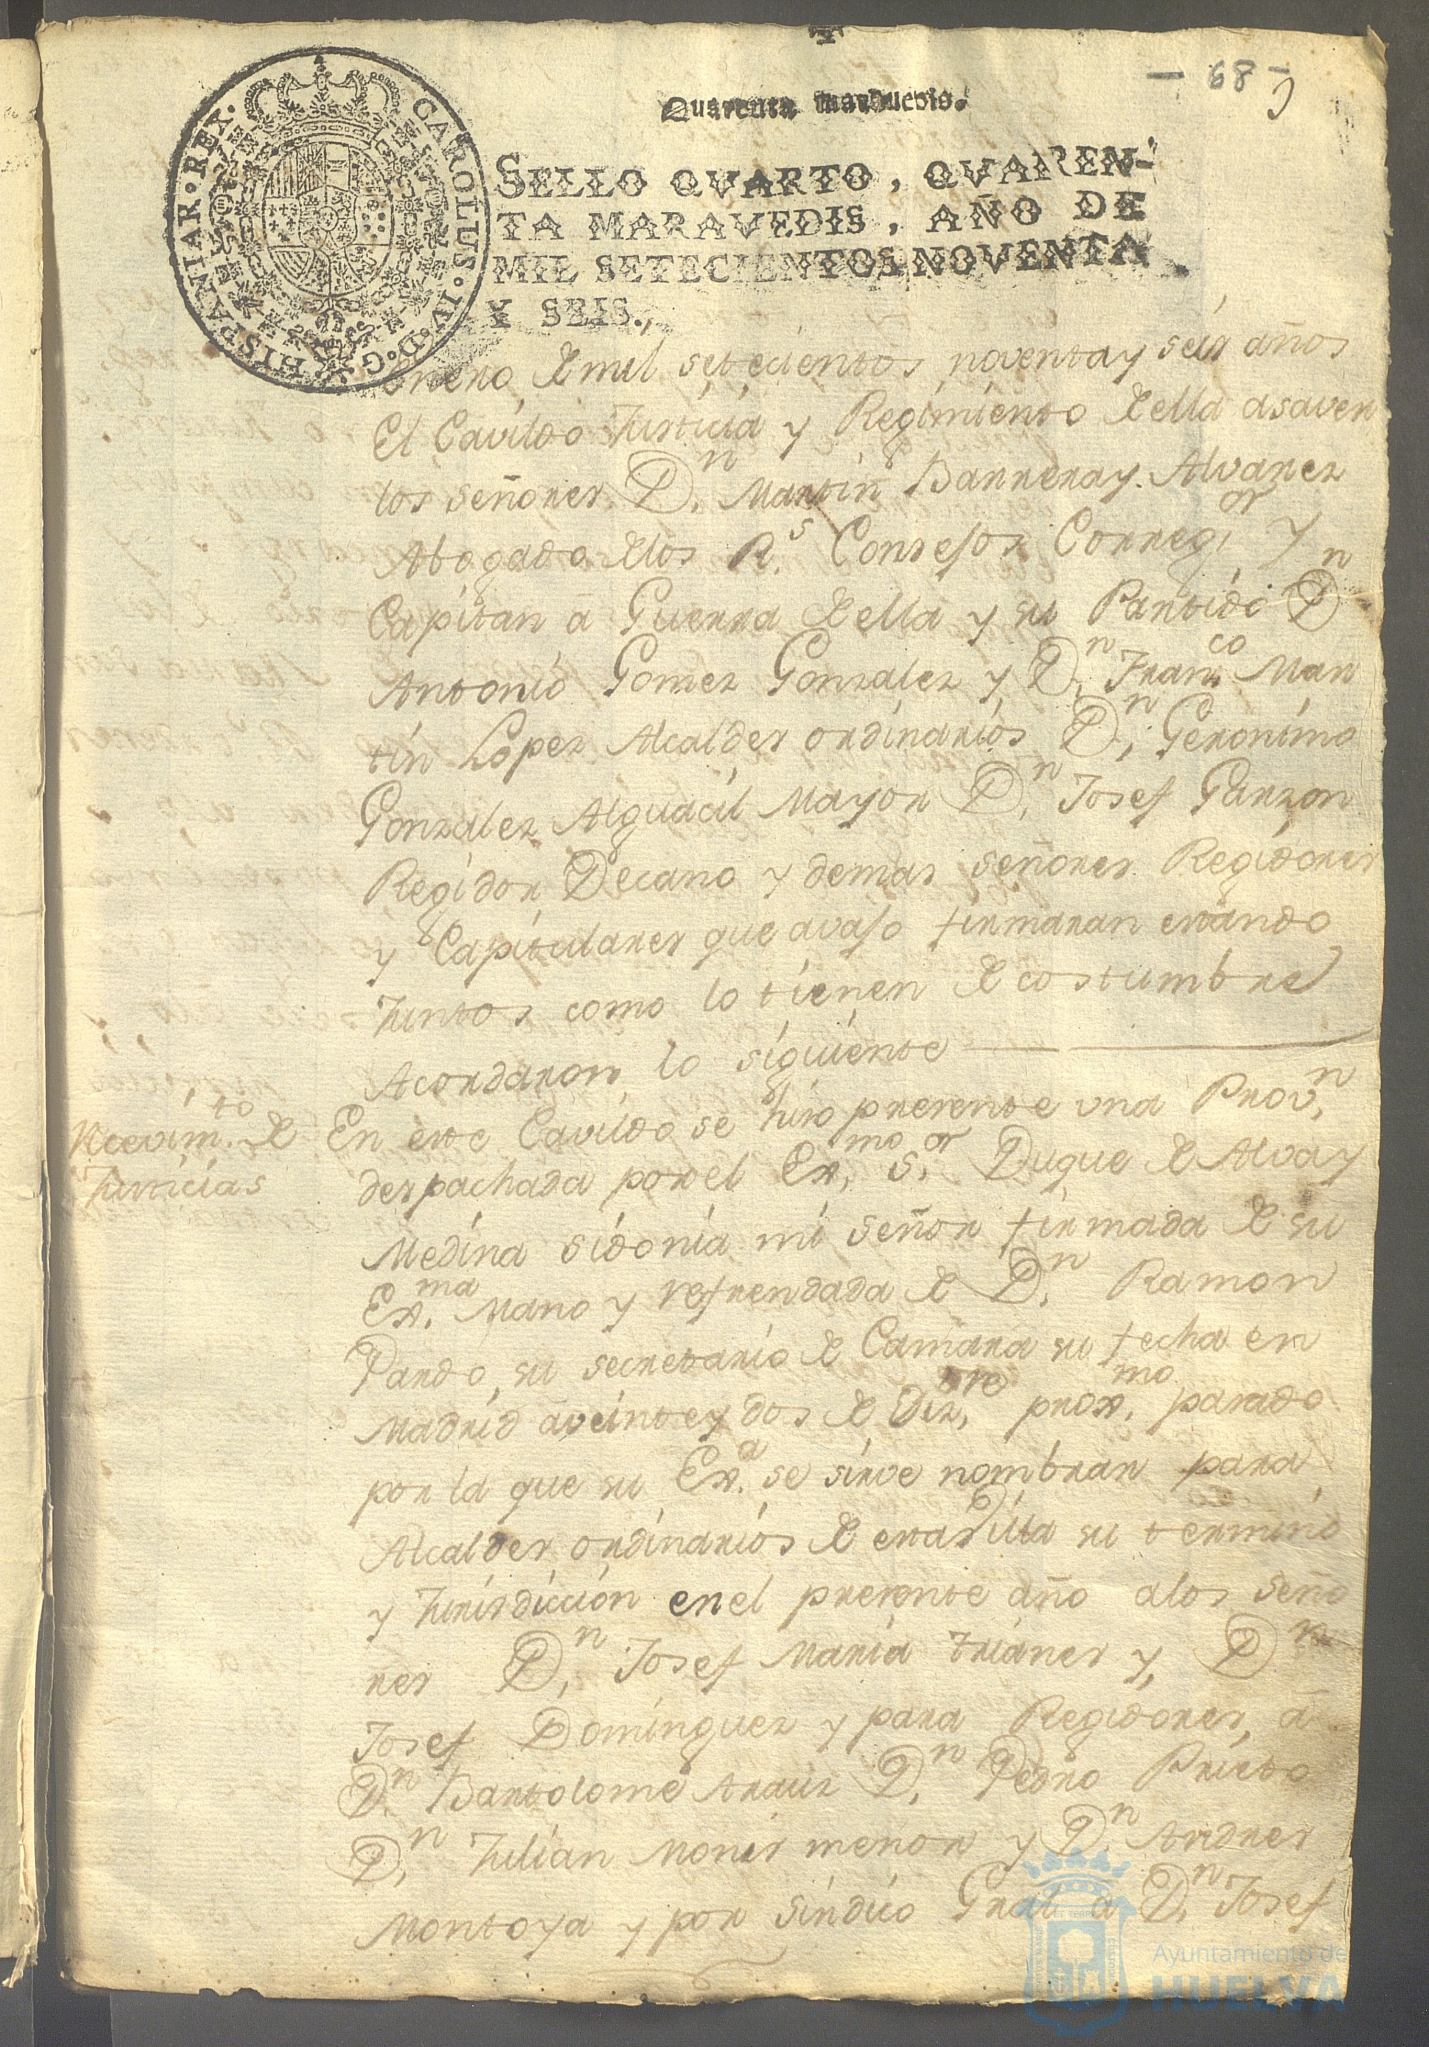 - 68 -
Quarenta maravedis.
CAROLUS·IV·D·G·HISPANIAR·REX·
SELLO QVARTO, QVAREN-
TA MARAVEDIS, AÑO DE
MIL SETECIENTOS NOVENTA
Y SEIS.
Enero de mil setecientos noventa y seis años
El Cavildo Justicia y Regimiento de ella asaver
los señores Dn. Martin Barrera y Alvarez
Abogado de los Rs. Consejos Corregor. y
Capitan a Guerra de ella y su Partido Dn
Antonio Gomez Gonzalez y Dn. Franco. Mar
tin Lopez Alcaldes ordinarios Dn. Geronimo
Gonzalez Alguacil Mayor Dn. Josef Garzon
Regidor Decano y demas señores Regidores
y Capitulares que avajo firmaran estando
Juntos como lo tienen de costumbre
Acordaron lo siguiente
Recevimto. de
Justicias
En este Cavildo se hizo presente una Provn.
despachada por el Exmo. Sor. Duque de Alva y
Medina sidonia mi señor firmada de su
Exma. Mano y refrendada de Dn. Ramon
Pardo, su secretario de Camara su fecha en
Madrid a veinte y dos de Dizre. proxmo. pasado
por la que su Exa. se sirve nombrar para
Alcaldes ordinarios de esta Villa su termino
y Jurisdiccion en el presente año a los seño
res Dn. Josef Maria Trianes y, Dn
Josef Dominguez y para Regidores, a
Dn. Bartolome Arauz Dn. Pedro Prieto
Dn. Julian Monis menor y Dn. Andres
Montoya y por sindico Gral a Dn. Josef
Ayuntamiento de
HUELVA